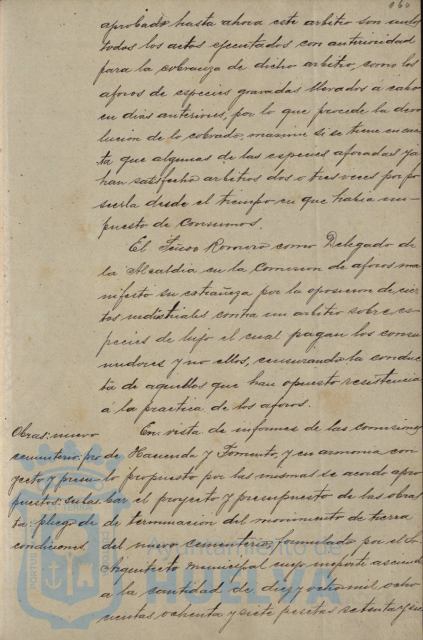 160
aprobado hasta ahora este arbitrio son nulos
todos los actos ejecutados con anterioridad
para la cobranza de dicho arbitrio, como los
aforos de especies gravadas llevados a cabo
en dias anteriores, por lo que procede la devo
lucion de lo cobrado, maxime si se tiene en cuen
ta que algunas de las especies aforadas ya
han satisfecho arbitrios dos o tres veces por po
seerla desde el tiempo en que habia im-
puesto de Consumos.
El Señor Romero como Delegado de
la Alcaldia en la Comision de aforos ma
nifesto su extrañeza por la oposicion de cier
tos industriales contra un arbitrio sobre es
pecies de lujo el cual pagan los consu
midores y no ellos, censurando la conduc
ta de aquellos que han opuesto resistencia
á la practica de los aforos.
Obras: nuevo
cementerio: pro
yecto y presu-
puestos: subas
ta: pliego de
condiciones.
En vista de informes de las comisiones
de Hacienda y Fomento, y en armonia con
lo propuesto por las mismas se acordó apro
bar el proyecto y presupuesto de las obras
de terminacion del movimiento de tierra
del nuevo cementerio, formulado por el Sr.
Arquitecto municipal cuyo importe asciende
a la cantidad de diez y ocho mil ocho
cientas ochenta y siete pesetas setenta y
Ayuntamiento de
HUELVA